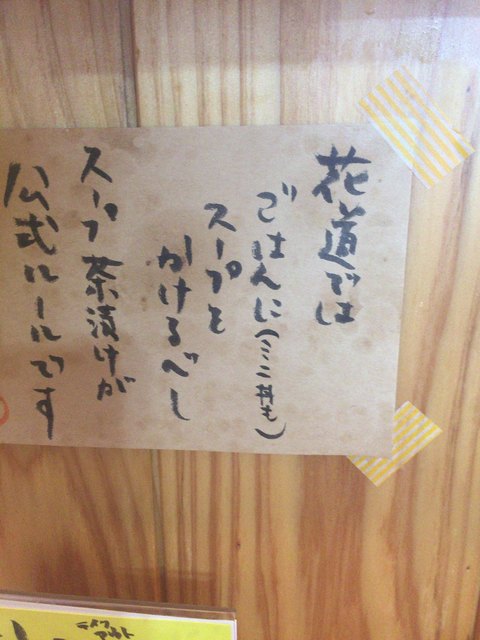 花道では
ごはんに(ミニ丼も)
スープを
かけるべし
スープ茶漬けが
公式ルールです
テイク
アウト